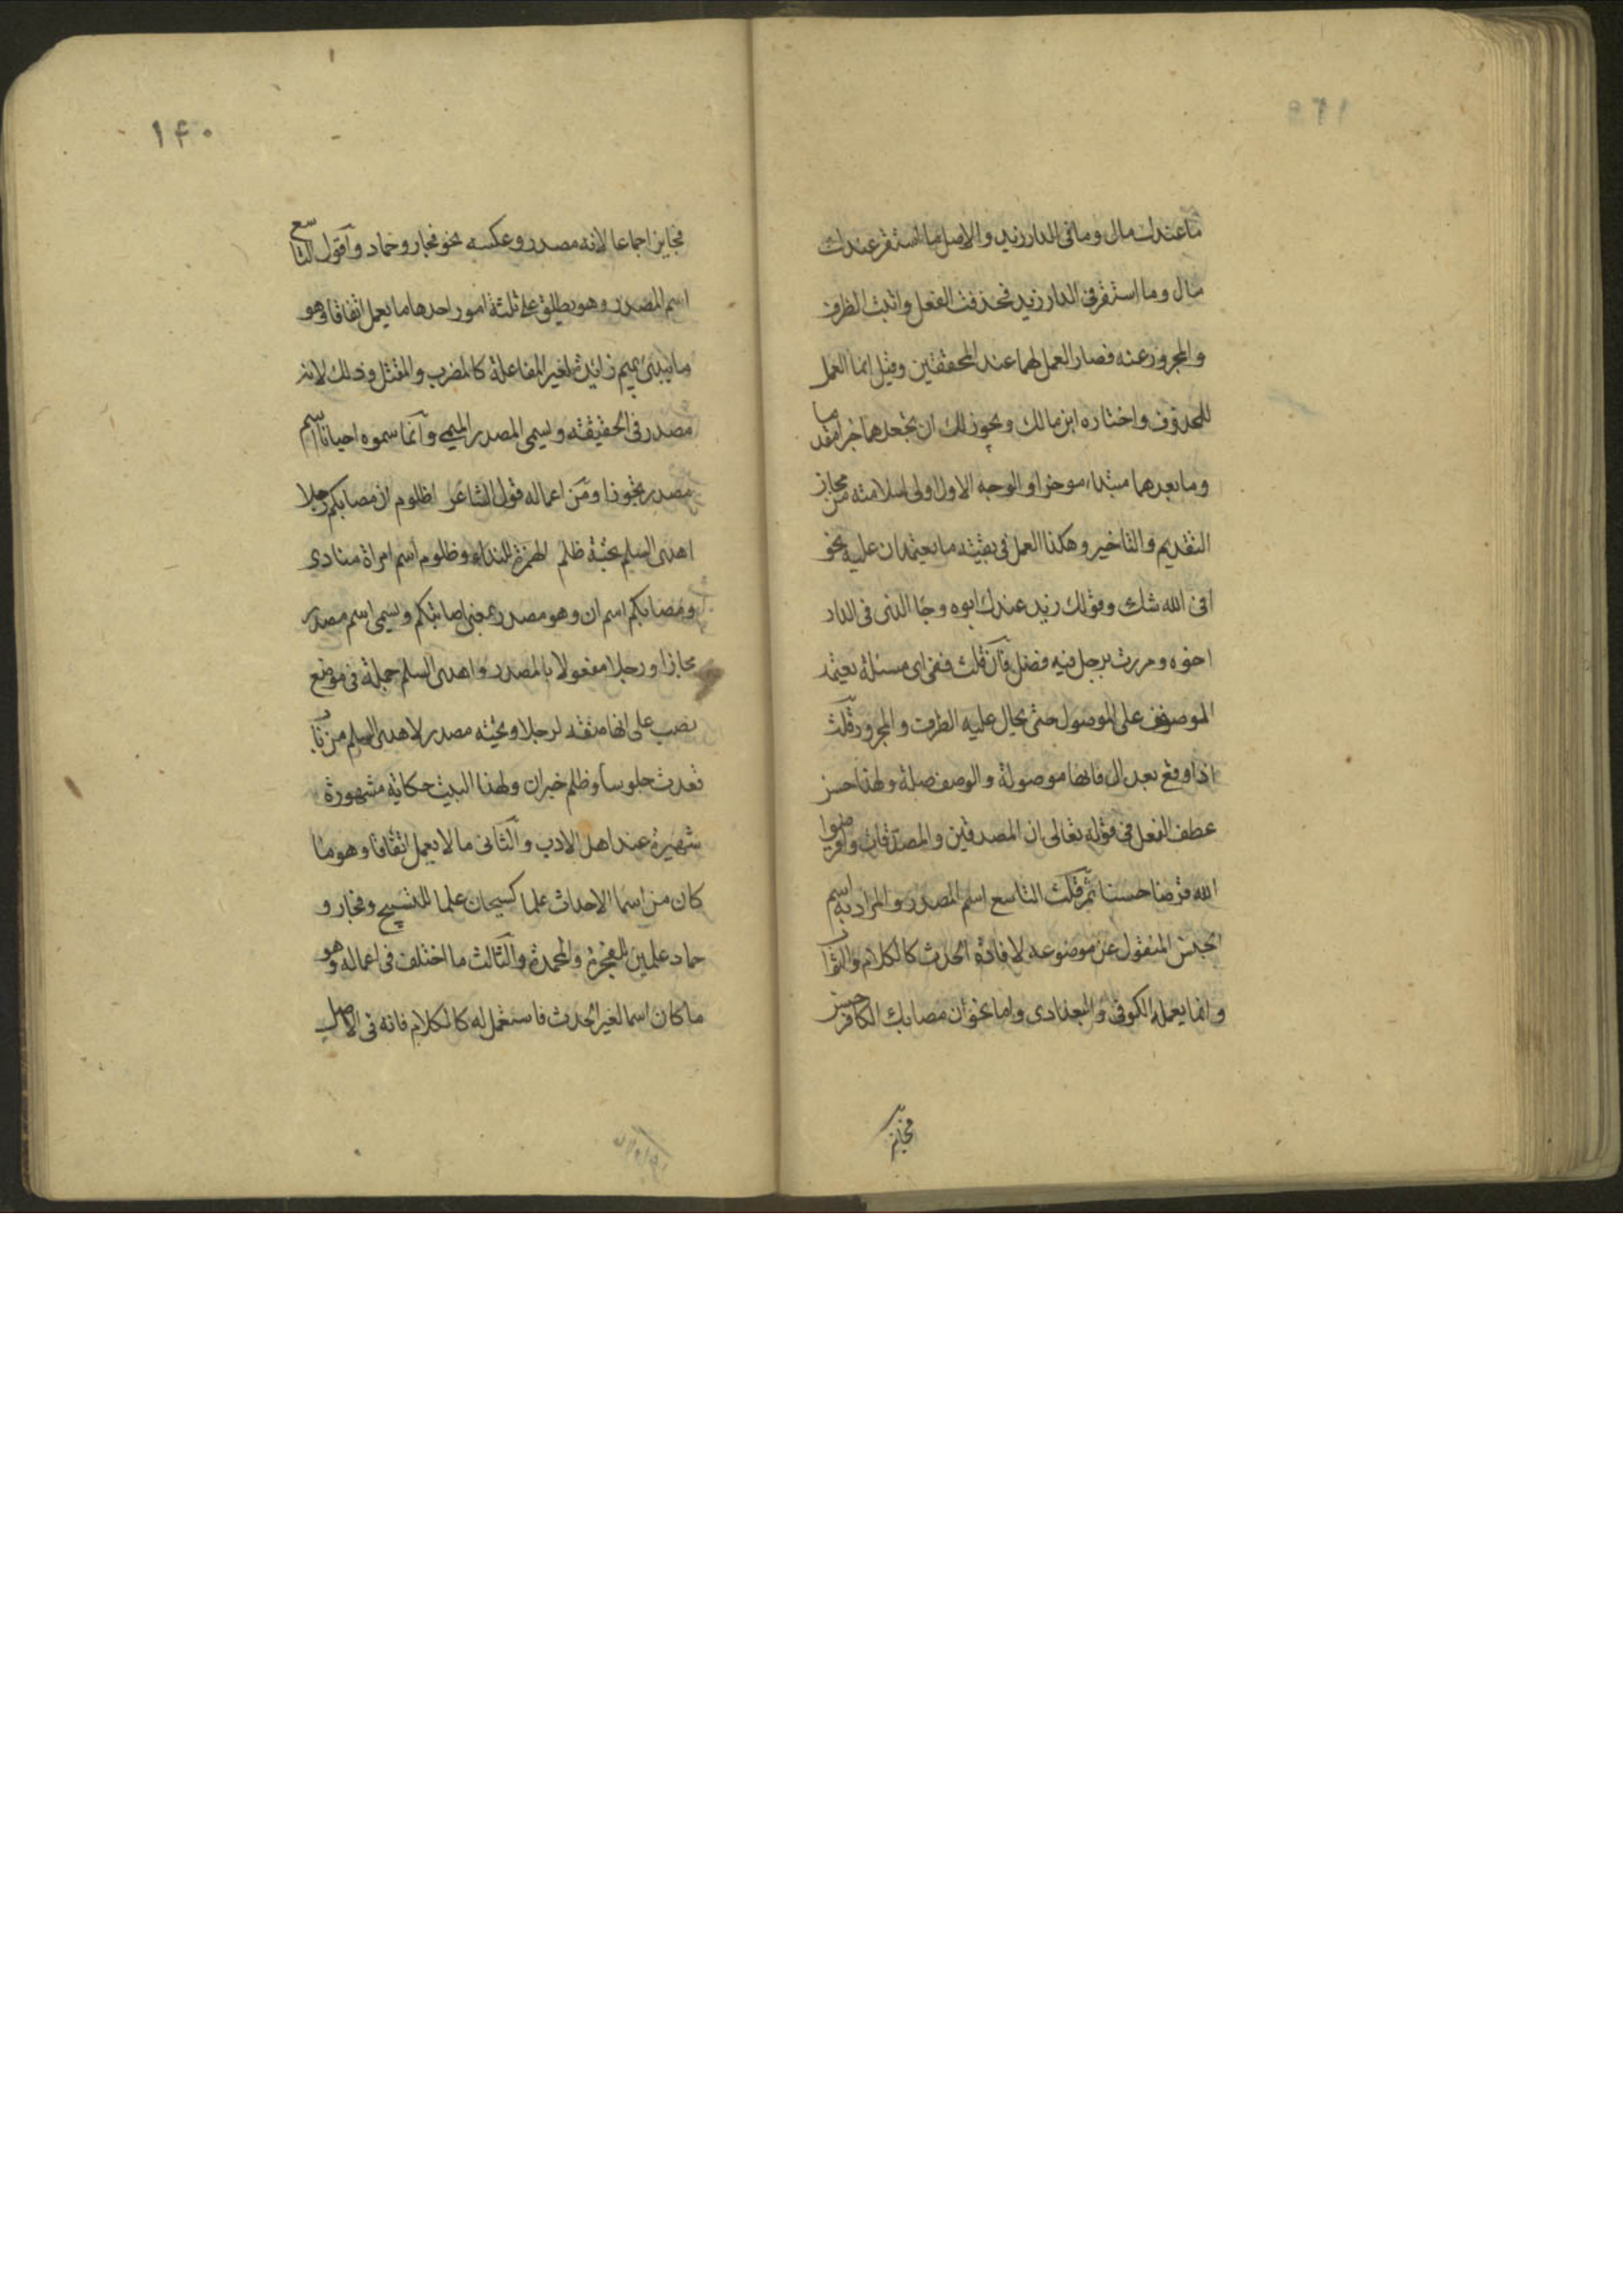 ما عندك مال وما فى الدار زيد والاصل ما استقر عندك
مال وما استقر فى الدار زيد فحذفت الفعل وانبت الظرف
والمجرور عنه فصار العمل لهما عند المحققين وقيل انما العمل
للمحذوف واختاره ابن مالك ويجوز لك ان تجعلهما خبرا مقدما
وما بعدهما مبتداء موخرا والوجه الاول اولى لسلامته من مجاز
التقديم والتاخير وهكذا العمل فى بقيته ما يعتمدان عليه نحو
افى الله شك وقولك زيد عندك ابوه وجا الذى فى الدار
اخوه ومررت برجل فيه فضل فان قلت ففى اى مسئلة يعتمد
الموصوف على الموصول حتى يحال عليه الظرف والمجرور قلت
اذا وقع بعد ال فانها موصولة والوصف صلة ولهذا حسن
عطف الفعل فى قوله تعالى ان المصدقين والمصدقات واقرضوا
الله قرضا حسنا ثم قلت التاسع اسم المصدر والمراد به اسم
الجنس المنقول عن موضوعه لافادة الحدث كالكلام والثواب
وانما يعمله الكوفى والبغدادى واما نحو ان مصابك الكافر حسن
فجايز
۱۴۰
فجايز اجماعا لانه مصدر وعكسه نحو فجار وحماد واقول التاسع
اسم المصدر وهو يطلق على ثلثة امور احدها ما يعمل اتفاقا وهو
ما يبدئ بميم زائدة لغير المفاعلة كالمضرب والمقتل وذلك لانه
مصدر فى الحقيقته ويسمى المصدر الميمى وانما سموه احيانا اسم
مصدر تجوزا ومن اعماله قول الشاعر اظلوم ان مصابكم رجلا
اهدى السلم تحية ظلم الهمزة للنداء وظلوم اسم امراة منادى
ومصابكم اسم ان وهو مصدر بمعنى اصابتكم ويسمى اسم مصدر
مجازا ورجلا مفعولا بالمصدر واهدى السلم جملة فى موضع
نصب على انها صفة لرجلا وتحيته مصدر لاهدى السلم من باب
قعدت جلوسا وظلم خبر ان ولهذا البيت حكاية مشهورة
شهيرة عند اهل الادب والثانى ما لا يعمل اتفاقا وهو ما
كان من اسما الاحداث علما كسبحان علما للتسبيح وفجار و
حماد علمين للفجرة والمحمدة والثالث ما اختلف فى اعماله وهو
ما كان اسما لغير الحدث فاستعمل له كالكلام فانه فى الاصل